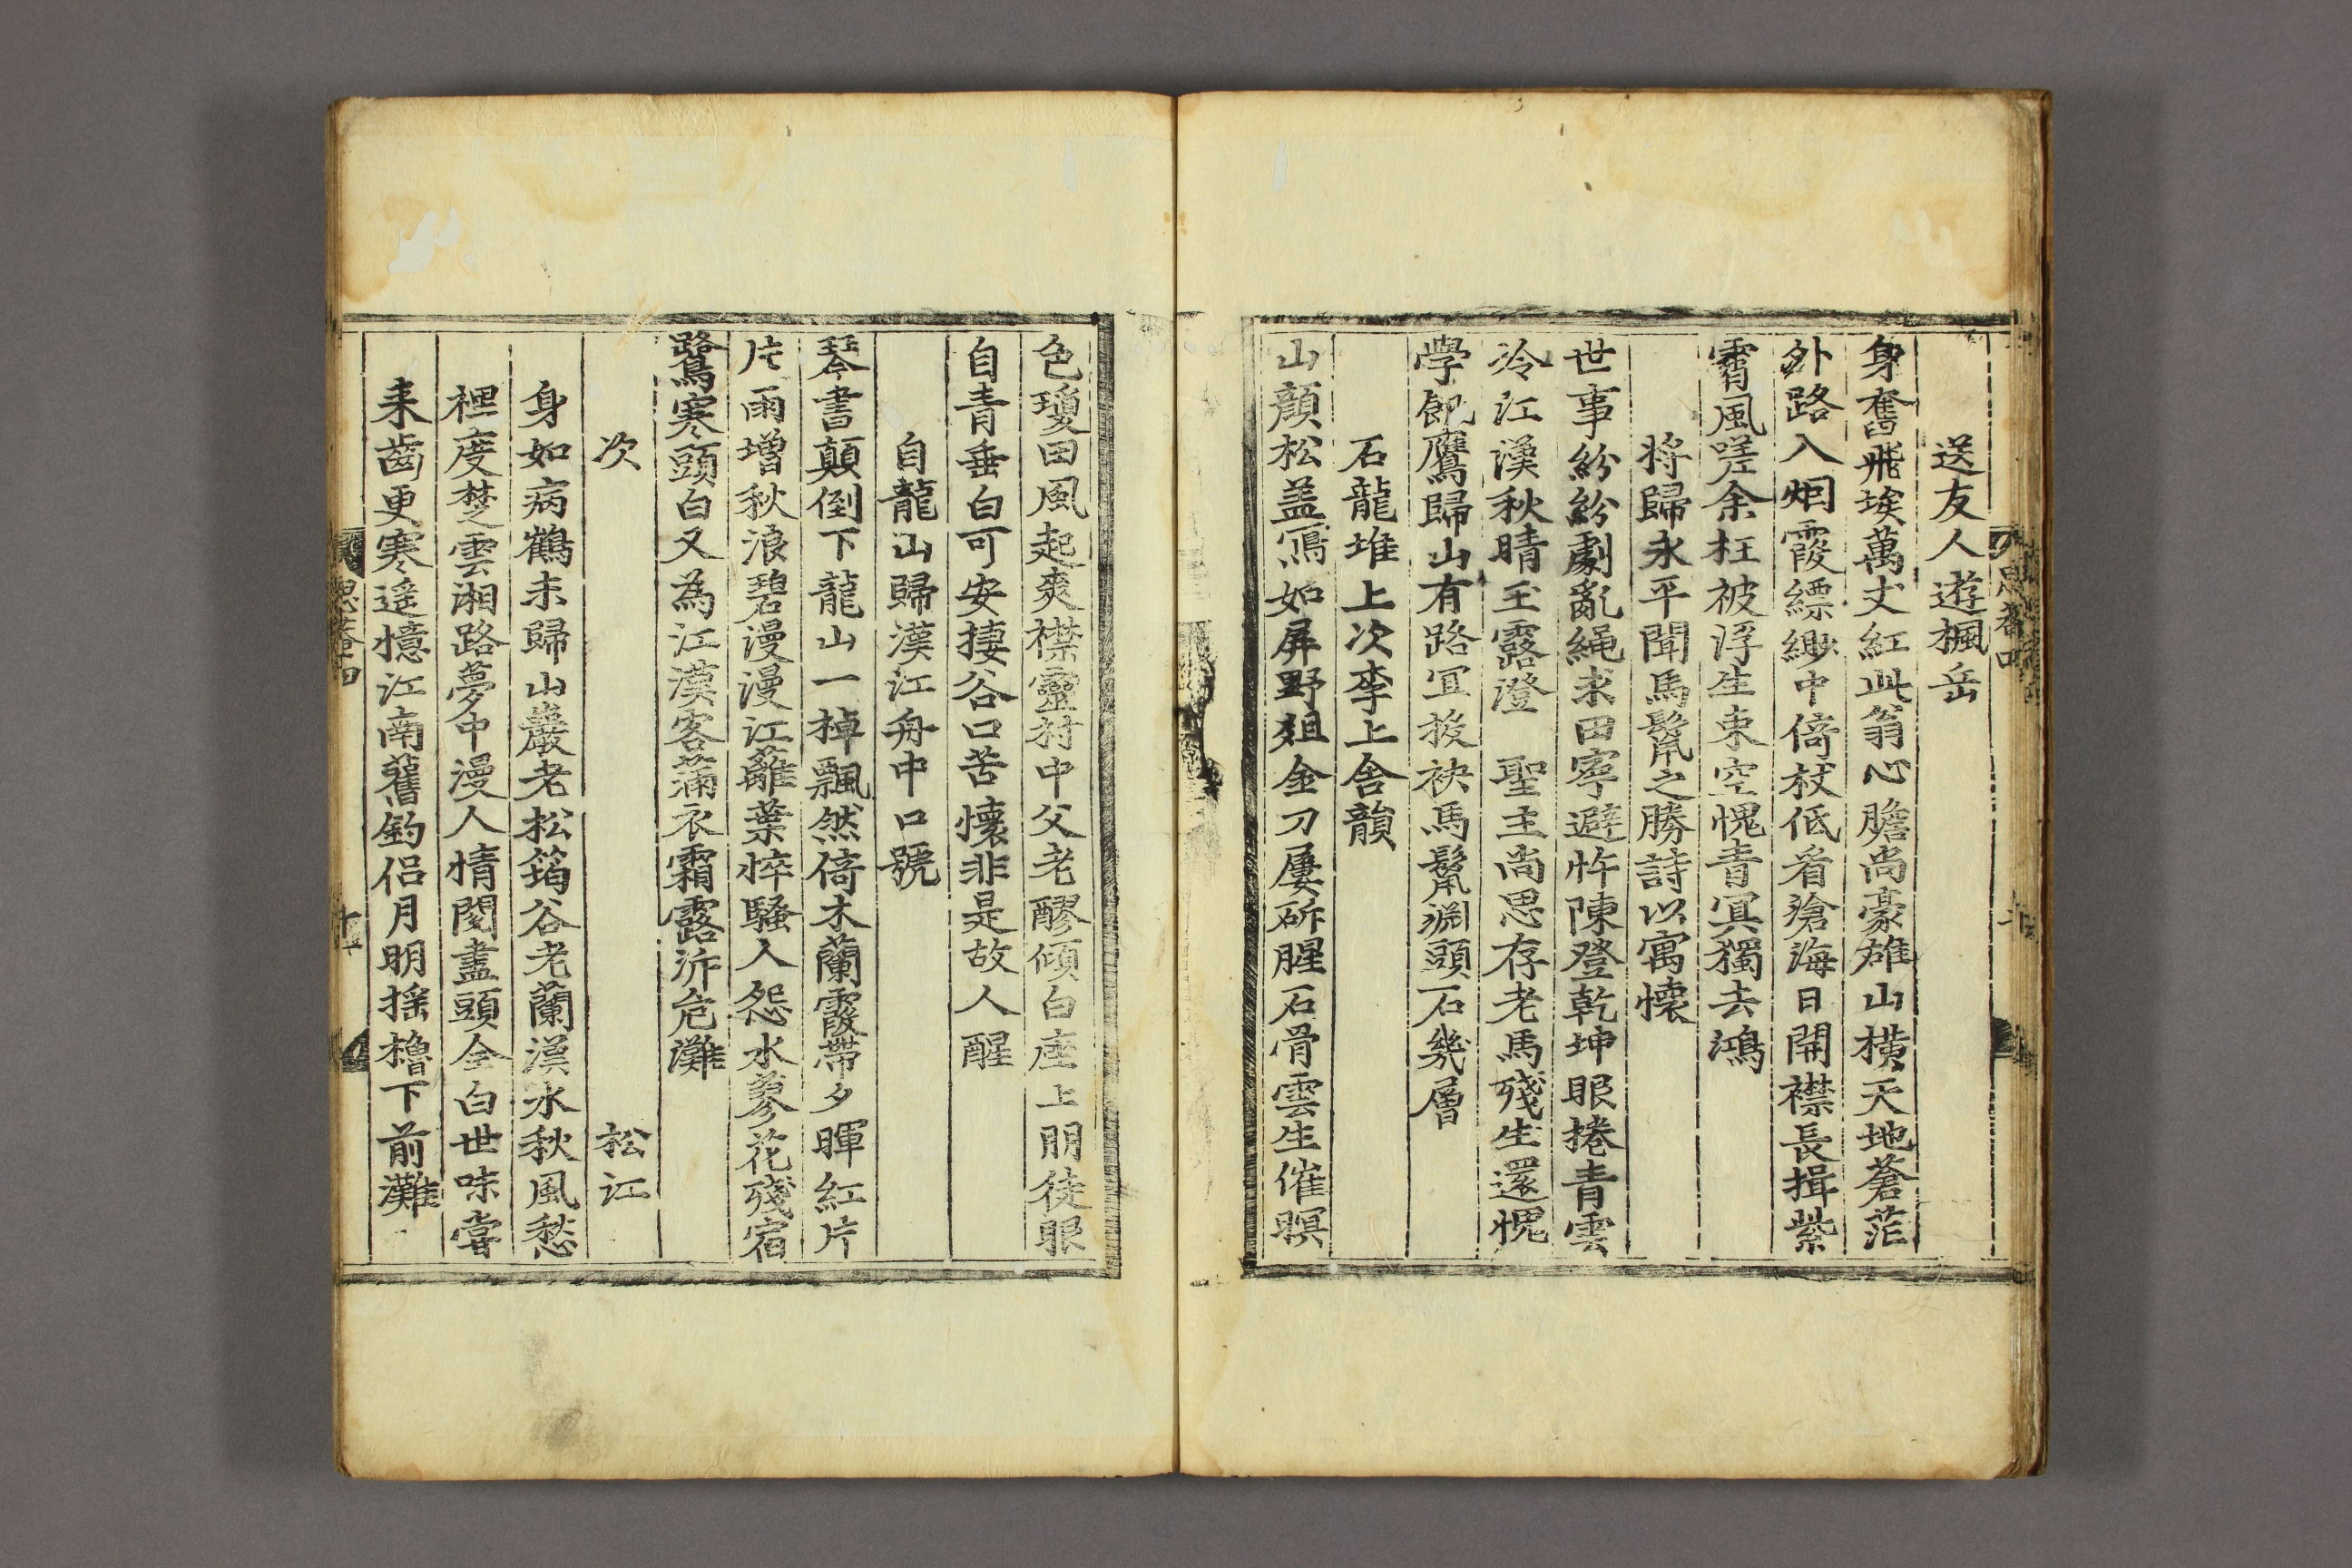 送友人遊楓岳
身奮飛埃萬丈紅此翁心膽尚豪雄山橫天地蒼茫
外路入烟霞縹緲中倚杖低看滄海日開襟長揖紫
霄風嗟余枉被浮生束空愧青冥獨去鴻
將歸永平聞馬鬣之勝詩以寓懷
世事紛紛劇亂繩求田寧避忤陳登乾坤眼捲青雲
冷江漢秋晴玉露澄 聖主尚思存老馬殘生還愧
學飢鷹歸山有路宜投袂馬鬣淵頭石幾層
石龍堆上次李上舍韻
山顔松盖寫如屏野狙金刀屢斫腥石骨雲生催暝
色瓊田風起爽襟靈村中父老醪傾白座上朋徒眼
自青垂白可安捿谷口苦懷非是故人醒
自龍山歸漢江舟中口號
琴書顛倒下龍山一棹飄然倚木蘭霞帶夕暉紅片
片雨增秋浪碧漫漫江蘺葉悴騷人怨水蓼花殘宿
鷺寒頭白又為江漢客滿衣霜露泝危灘
次 松江
身如病鶴未歸山巖老松筠谷老蘭漢水秋風愁
裡度楚雲湘路夢中漫人情閱盡頭全白世味嘗
来齒更寒遥憶江南舊釣侶月明揺櫓下前灘
思菴四